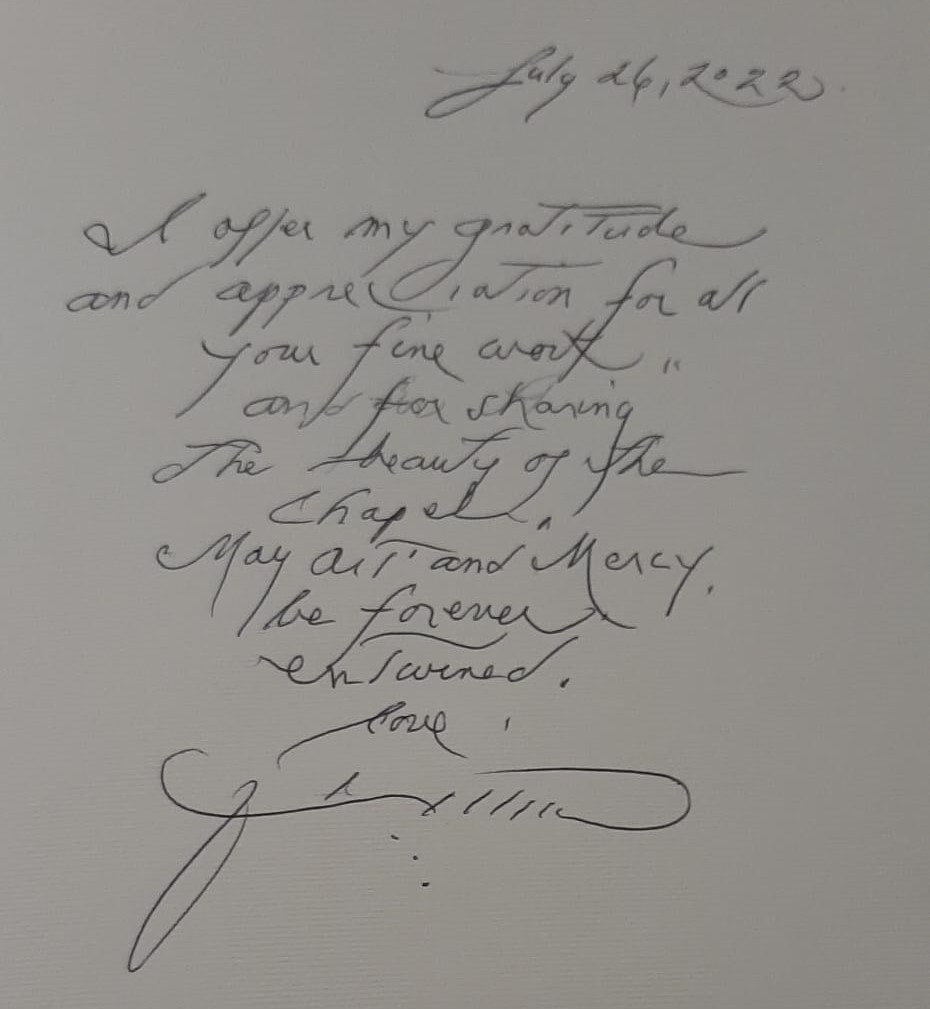 July 26, 2022.
I offer my gratitude
and appreciation for all
your fine work
and for sharing
the beauty of the
Chapel.
May art and Mercy.
be forever
entwined.
love,